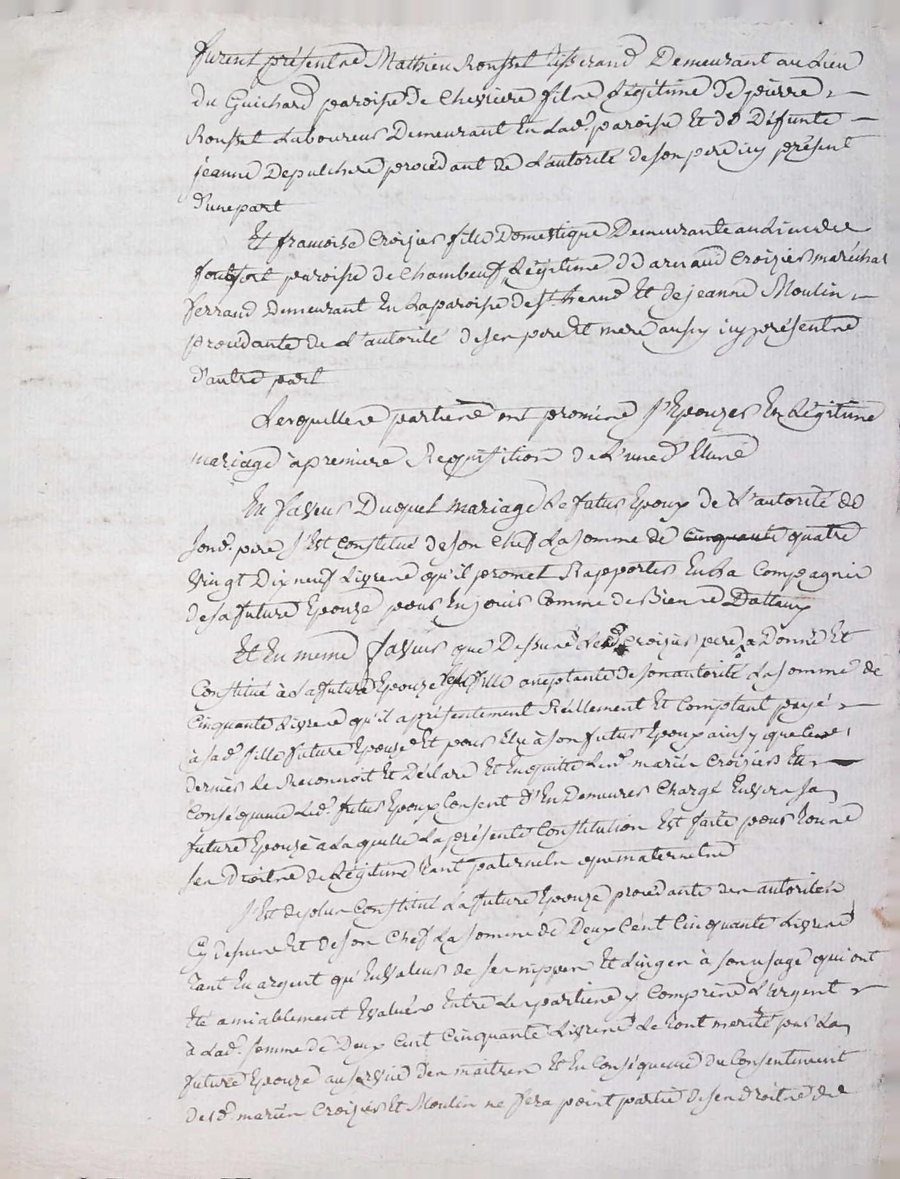 furent présents Mathieu Rousset tisserand Demeurant au Lieu
Du Guichard paroisse de Chevriere fils Légitime de pierre
Rousset Laboureur Demeurant En Lad. paroisse Et de Défunte
jeanne Depulchere procédant de L'autorité de son pere icy présent
d'une part
Et francoise Croizier fille Domestique Demeurante au Lieu de
paroisse de Chambeuf Légitime D'arnaud Croizier maréchal
ferrand Demeurant En La paroisse de St heand Et de jeanne Moulin
procédante de L'autorité de ses pere Et mere aussy icy présents
d'autre part
Lesquelles parties ont promis s'Epouzer En Légitime
mariage à premiere Requisition de L'une d'Elles
En faveur Duquel mariage Le futur Epoux de L'autorité de
sond. pere s'Est Constitué de son Chef La somme de cinquante quatre
vingt Dix neuf Livres qu'il promet Rapporter En La Compagnie
de sa future Epouze pour En jouir Comme de Biens Dottaux
Et En meme faveur que Dessus Led. Croizier pere a Donné Et
Constitué à La future Epouze sa fille acceptante de son autorité La somme de
Cinquante Livres qu'il a présentement Réellement Et Comptant payé
à sad. fille future Epouze Et pour Elle à son futur Epoux ainsy que Ce
dernier Le Reconnoit Et Déclare Et En quitte Lesd. mariés Croizier En
Conséquence Led. futur Epoux Consent d'En Demeurer Chargé Envers sa
future Epouze à Laquelle La présente Constitution Est faite pour tous
ses Droits de Légitime tant paternels que maternels
s'Est de plus Constitué La future Epouze procédante des autorités
Cy dessus Et de son Chef La somme de Deux Cent Cinquante Livres
Tant En argent qu'En valeur de ses nippes Et Linges à son usage qui ont
Eté amiablement Evalués Entre Les parties y Compris L'argent
à Lad. somme de Deux Cent Cinquante Livres Le tout merité par La
future Epouze au service des maitres Et En Conséquence Du Consentement
Desd. mariés Croizier Et Moulin ne fera point partie de ses droits de